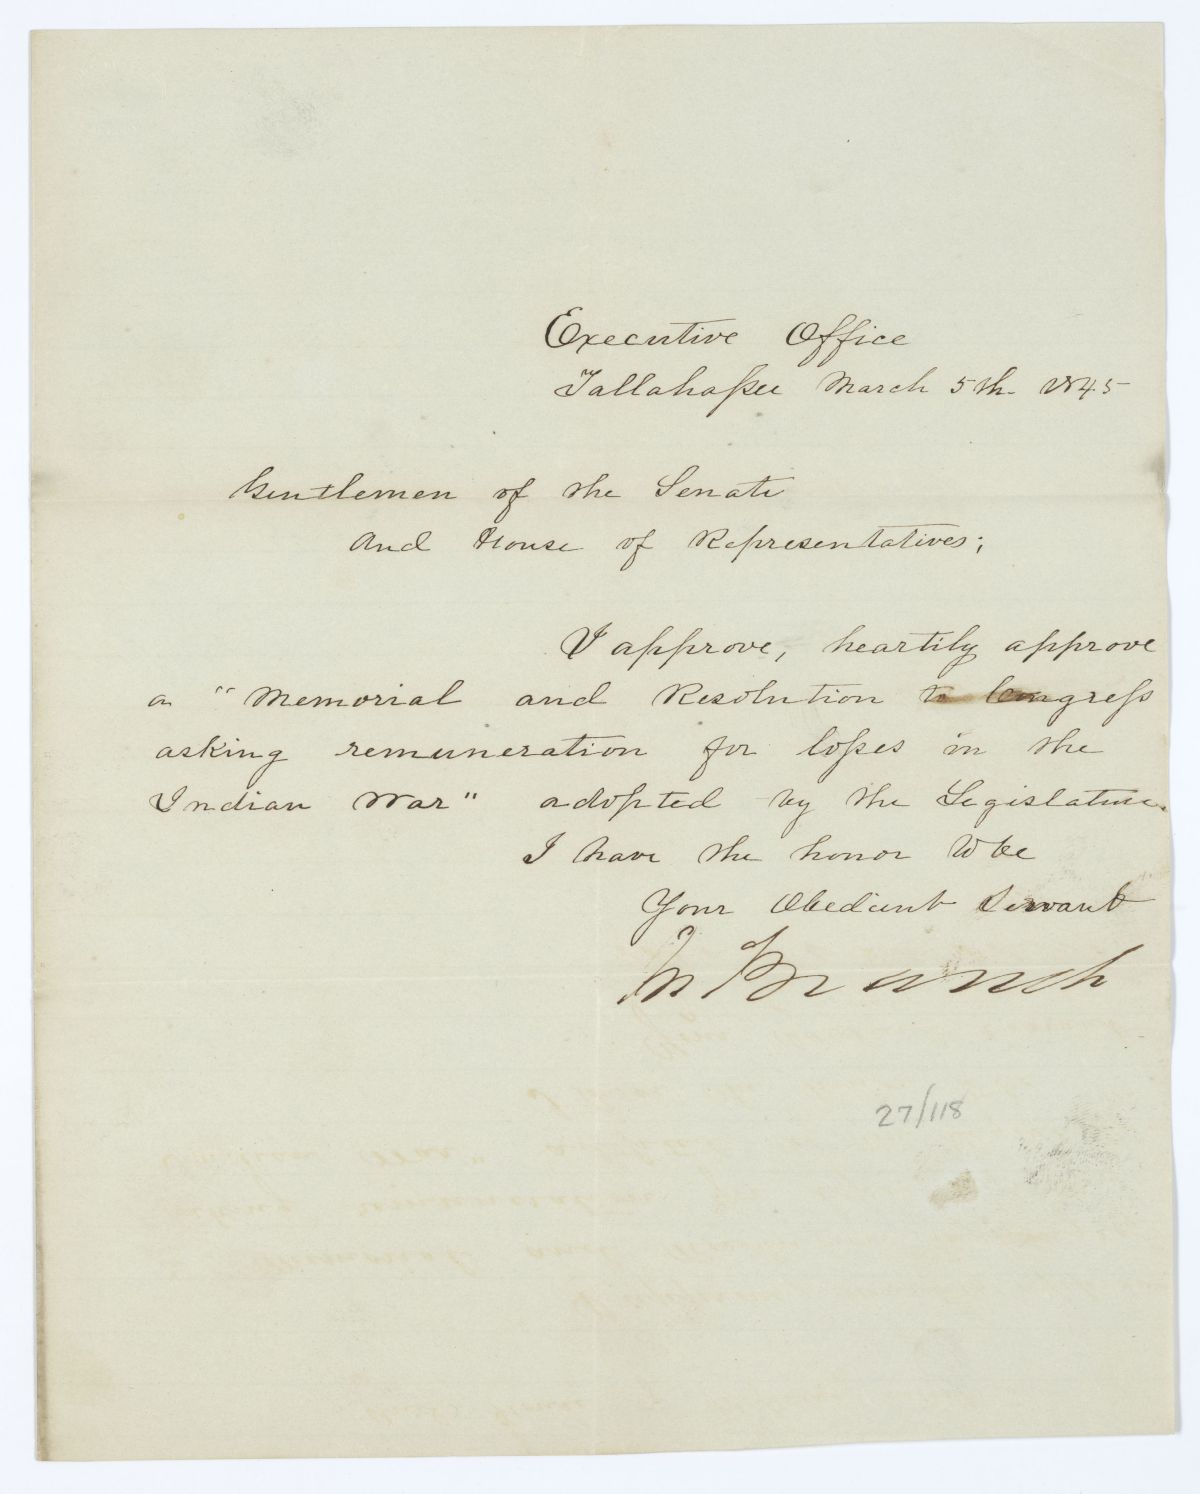 Executive Office
Tallahassee March 5th. 1845
Gentlemen of the Senate
And House of Representatives;
I approve, heartily approve
a "Memorial and Resolution to Congress
asking remuneration for losses in the
Indian War" adopted by the Legislature.
I have the honor to be
Your Obedient Servant
Jn Branch
27/118